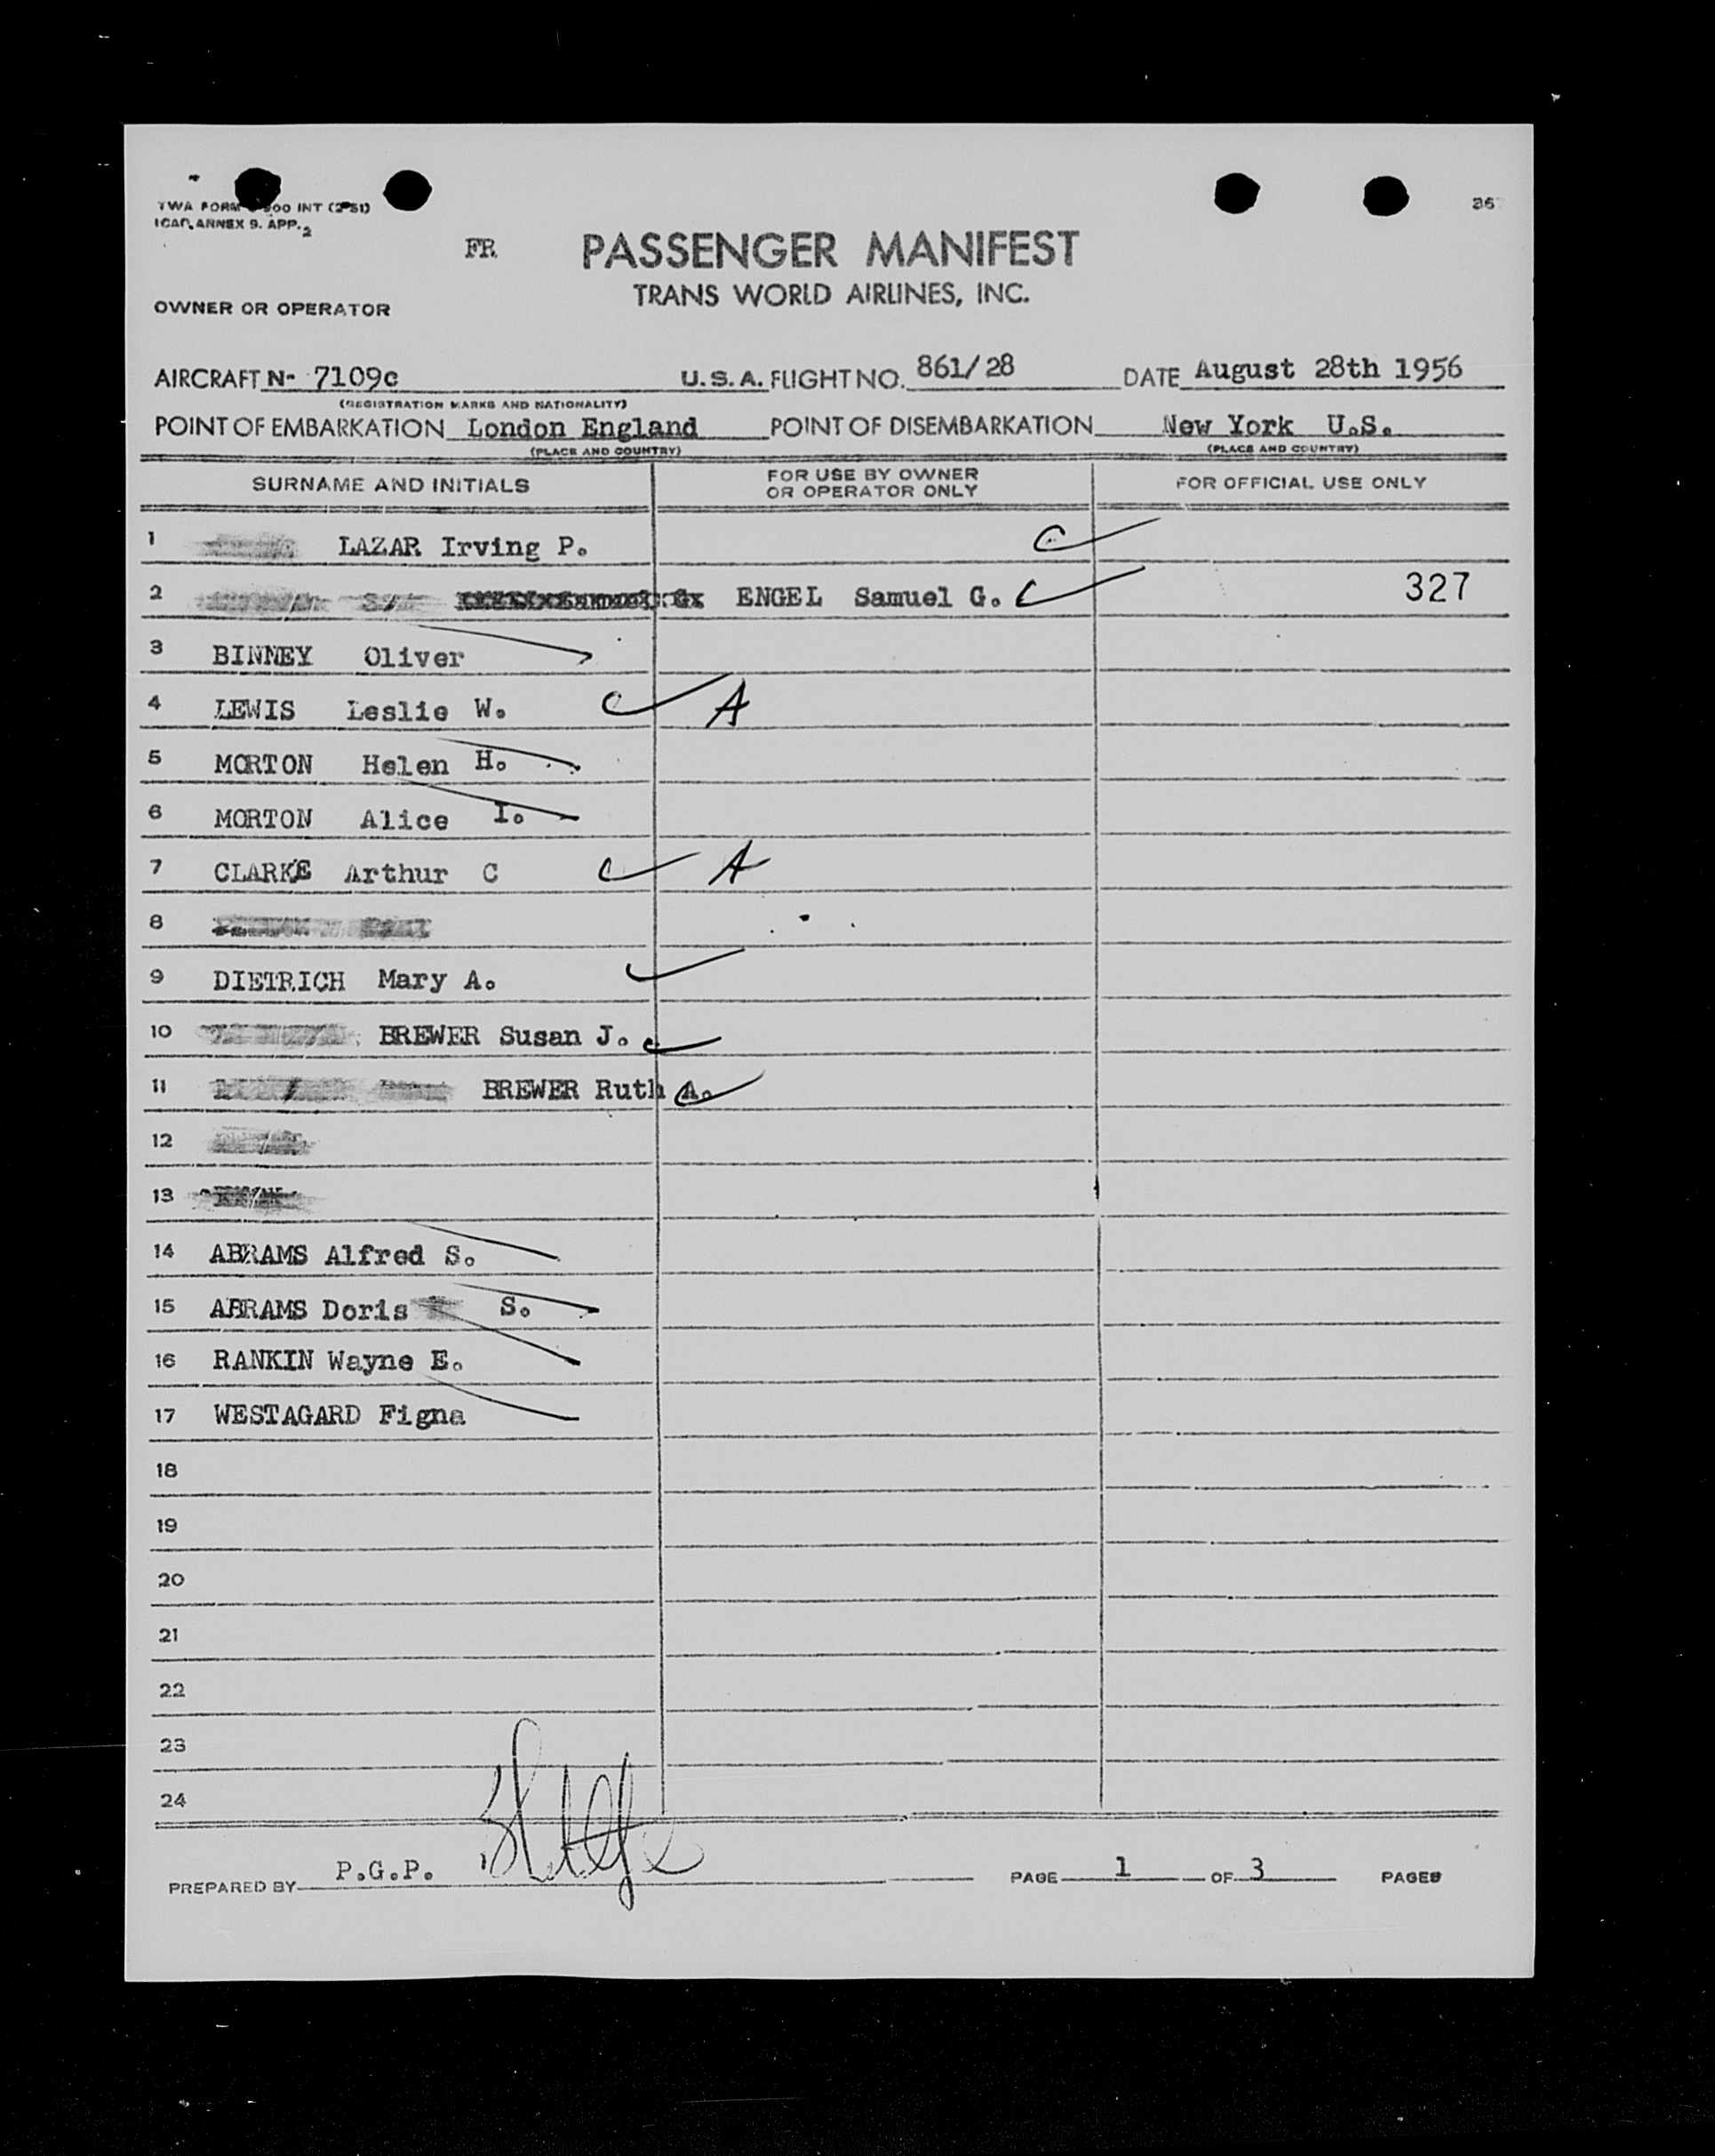 TWA FORM 00 INT (2-51)
ICAO ANNEX 9. APP. 2
FR
PASSENGER MANIFEST
TRANS WORLD AIRLINES, INC.
OWNER OR OPERATOR
AIRCRAFT N- 7109c U.S.A. FLIGHT NO. 861/28 DATE August 28th 1956
(REGISTRATION MARKS AND NATIONALITY)
POINT OF EMBARKATION London England POINT OF DISEMBARKATION New York U.S.
(PLACE AND COUNTRY) (PLACE AND COUNTRY)
SURNAME AND INITIALS FOR USE BY OWNER OR OPERATOR ONLY FOR OFFICIAL USE ONLY
1 LAZAR Irving P. C
2 ENGEL Samuel G. C 327
3 BINNEY Oliver
4 LEWIS Leslie W. C A
5 MORTON Helen H.
6 MORTON Alice I.
7 CLARKE Arthur C C A
8
9 DIETRICH Mary A.
10 BREWER Susan J.
11 BREWER Ruth A.
12
13
14 ABRAMS Alfred S.
15 ABRAMS Doris S.
16 RANKIN Wayne E.
17 WESTAGARD Figna
18
19
20
21
22
23
24
PREPARED BY P.G.P. PAGE 1 OF 3 PAGES